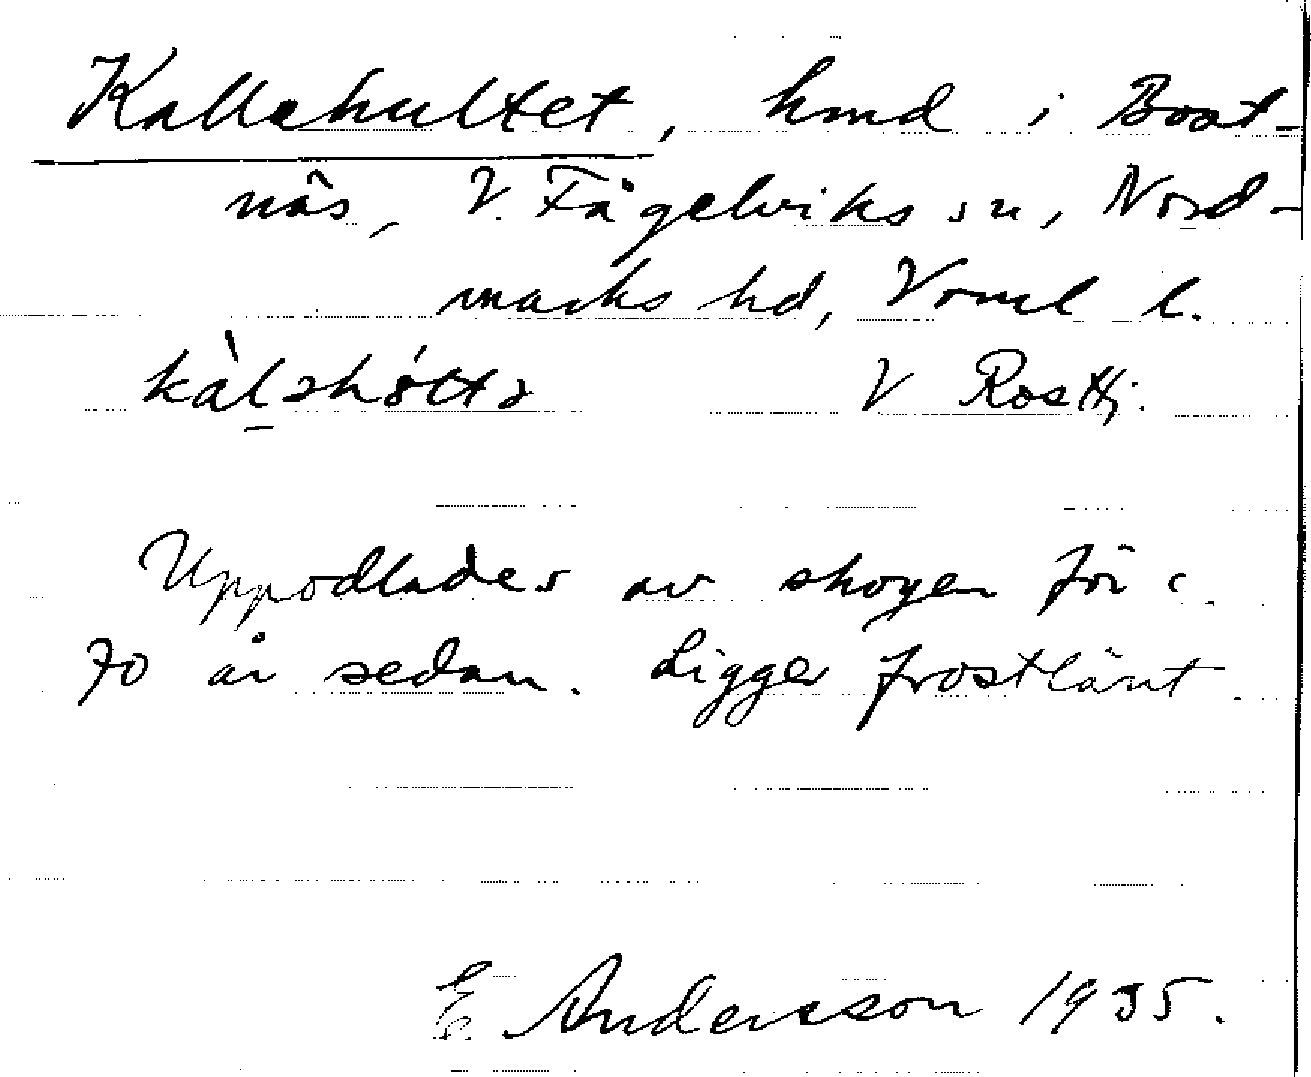 Kallehultet, hmd i Boat-
näs, V. Fågelviks sn, Nord-
marks hd, Vrml l.
kàl̠əhóttə V Rostkj.
Uppodlades av skogen för c.
70 år sedan. Ligger frostlänt.
E. Andersson 1935.